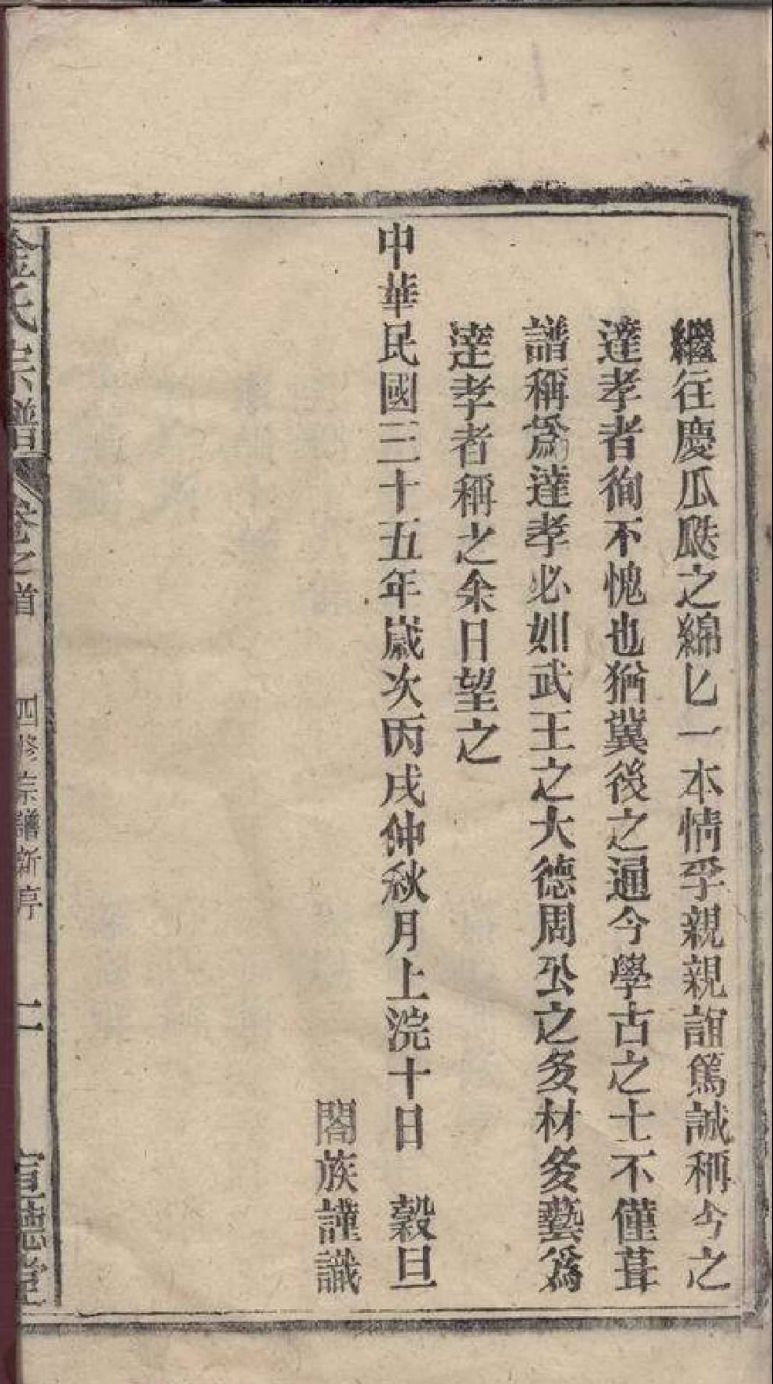 繼往慶瓜瓞之綿匕一本情孚親親誼篤誠稱今之
達孝者徇不愧也猶冀後之通今學古之士不僅葺
譜稱爲達孝必如武王之大德周公之多材多藝爲
達孝者稱之余日望之
中華民國三十五年歲次丙戌仲秋月上浣十日 穀旦
閤族謹識
金氏宗譜 卷之首 四修宗譜新序 二 宣德堂